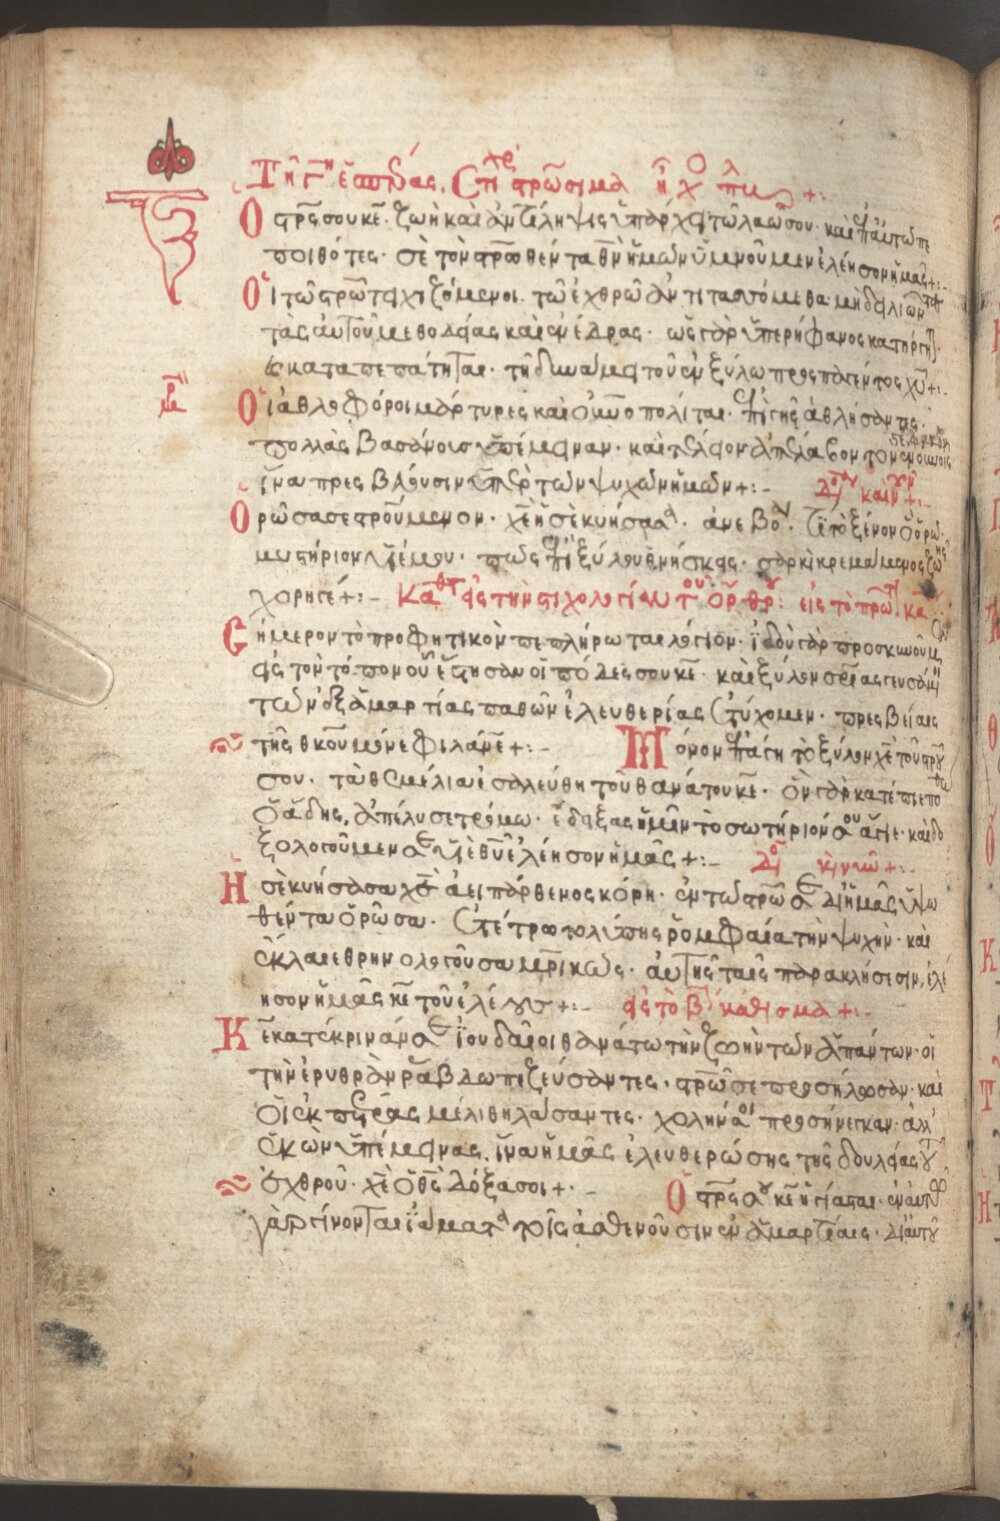 Τῇ γῃ ἑσπέρας, Στιχρ σταυρώσιμα ἦχος πλ
Ὁ στρός σου κε ζωὴ καὶ ἀντίληψις ὑπάρχει τῶ λαῶ σου καὶ ἐπαυτῶ πε
ποιθότες σὲ τὸν στρωθέντα θν ἡμῶν ὑμνοῦμεν ἐλέησον ἡμᾶς +:-
Οἱ τῶ στρῶ τειχιζόμενοι τῶ ἐχθρῶ ἀντιταττόμεθα μὴ δειλιῶντες
τὰς αὐτοῦ μεθοδείας καὶ ἐνέδρας ὡς γὰρ ὑπερήφανος κατήργηται
κ καταπεπάτηται τῇ δυνάμει τοῦ ἐν ξύλω προσπαγέντος χυ +:-
Οἱ ἀθλοφόροι μάρτυρες καὶ οὐνοπολίται ἐπὶ γῆς ἀθλήσαντες
πολλὰς βασάνους ὑπέμειναν καὶ τελείον
ἵνα πρεσβεύουσιν ὑπὲρ τῶν ψυχῶν ἡμῶν +:- δο καὶ νῦν +:-
Ὁρῶσά σε στρούμενον χε ἡ σὲ κυήσασα ἀνεβόα τί τὸ ξένον ὃ ὁρῶ
μυστήριον υἱέ μου πῶς ἐπὶ ξύλου θνήσκεις σαρκὶ κρεμάμενος ζωῆς
χορηγέ +:- Καθ εἰς τὴν στιχολογίαν τοῦ ὄρθρου εἰς τὸ πρῶτ κα
Σήμερον τὸ προφητικὸν πεπλήρωται λόγιον ἰδοὺ γὰρ προσκυνοῦμεν
εἰς τὸν τόπον οὗ ἔστησαν οἱ πόδες σου κε καὶ ξύλου σρίας γευσάμενοι
τῶν ἐξ ἁμαρτίας παθῶν ἐλευθερίας ἐτύχομεν πρεσβείαις
τῆς θκου μόνε φιλάνε +:- Μόνον ἐπάγη τὸ ξύλον χε τοῦ στρου
σου τὰ θεμέλια ἐσαλεύθη τοῦ θανάτου κε ὃν γὰρ κατέπιε πόθω
ὁ ἅδης, ἀπέλυσε τρόμω ἔδειξας ἡμῖν τὸ σωτήριόν σου ἅγιε καὶ δο
ξολογοῦμεν σε υἱὲ θυ ἐλέησον ἡμᾶς +:- δο κ νῦν +:-
Ἡ σὲ κυήσασα χε ἀειπάρθενος κόρη ἐν τῶ στρῶ σε δι ἡμᾶς ὑψω
θέντα ὁρῶσα ἐτέτρωτο λύπης ῥομφαία τὴν ψυχὴν καὶ
ἔκλαιε θρηνολογοῦσα μρικῶς αὐτῆς ταῖς παρακλήσεσιν, ἐλέ
ησον ἡμᾶς κε τοῦ ἐλέους +:- εἰς τὸ β κάθισμα +:-
Κε κατέκρινάν σε ἰουδαῖοι θανάτω τὴν ζωὴν τῶν ἁπάντων οἱ
τὴν ἐρυθρὰν ῥάβδω πεζεύσαντες, στρῶ σε προσήλωσαν καὶ
οἱ ἐκ πέτρας μέλι θηλάσαντες χολήν σοι προσήνεγκαν ἀλλ
ἑκὼν ὑπέμεινας, ἵνα ἡμᾶς ἐλευθερώσης τῆς δουλείας τοῦ
ἐχθροῦ χε ὁ θς δόξα σοι +:- Ὁ στρός σου κε ἡγίασται ἐν αὐτῶ
γὰρ γίνονται ἰάματα τοῖς ἀσθενοῦσιν ἐν ἁμαρτίαις δι αὐτοῦ